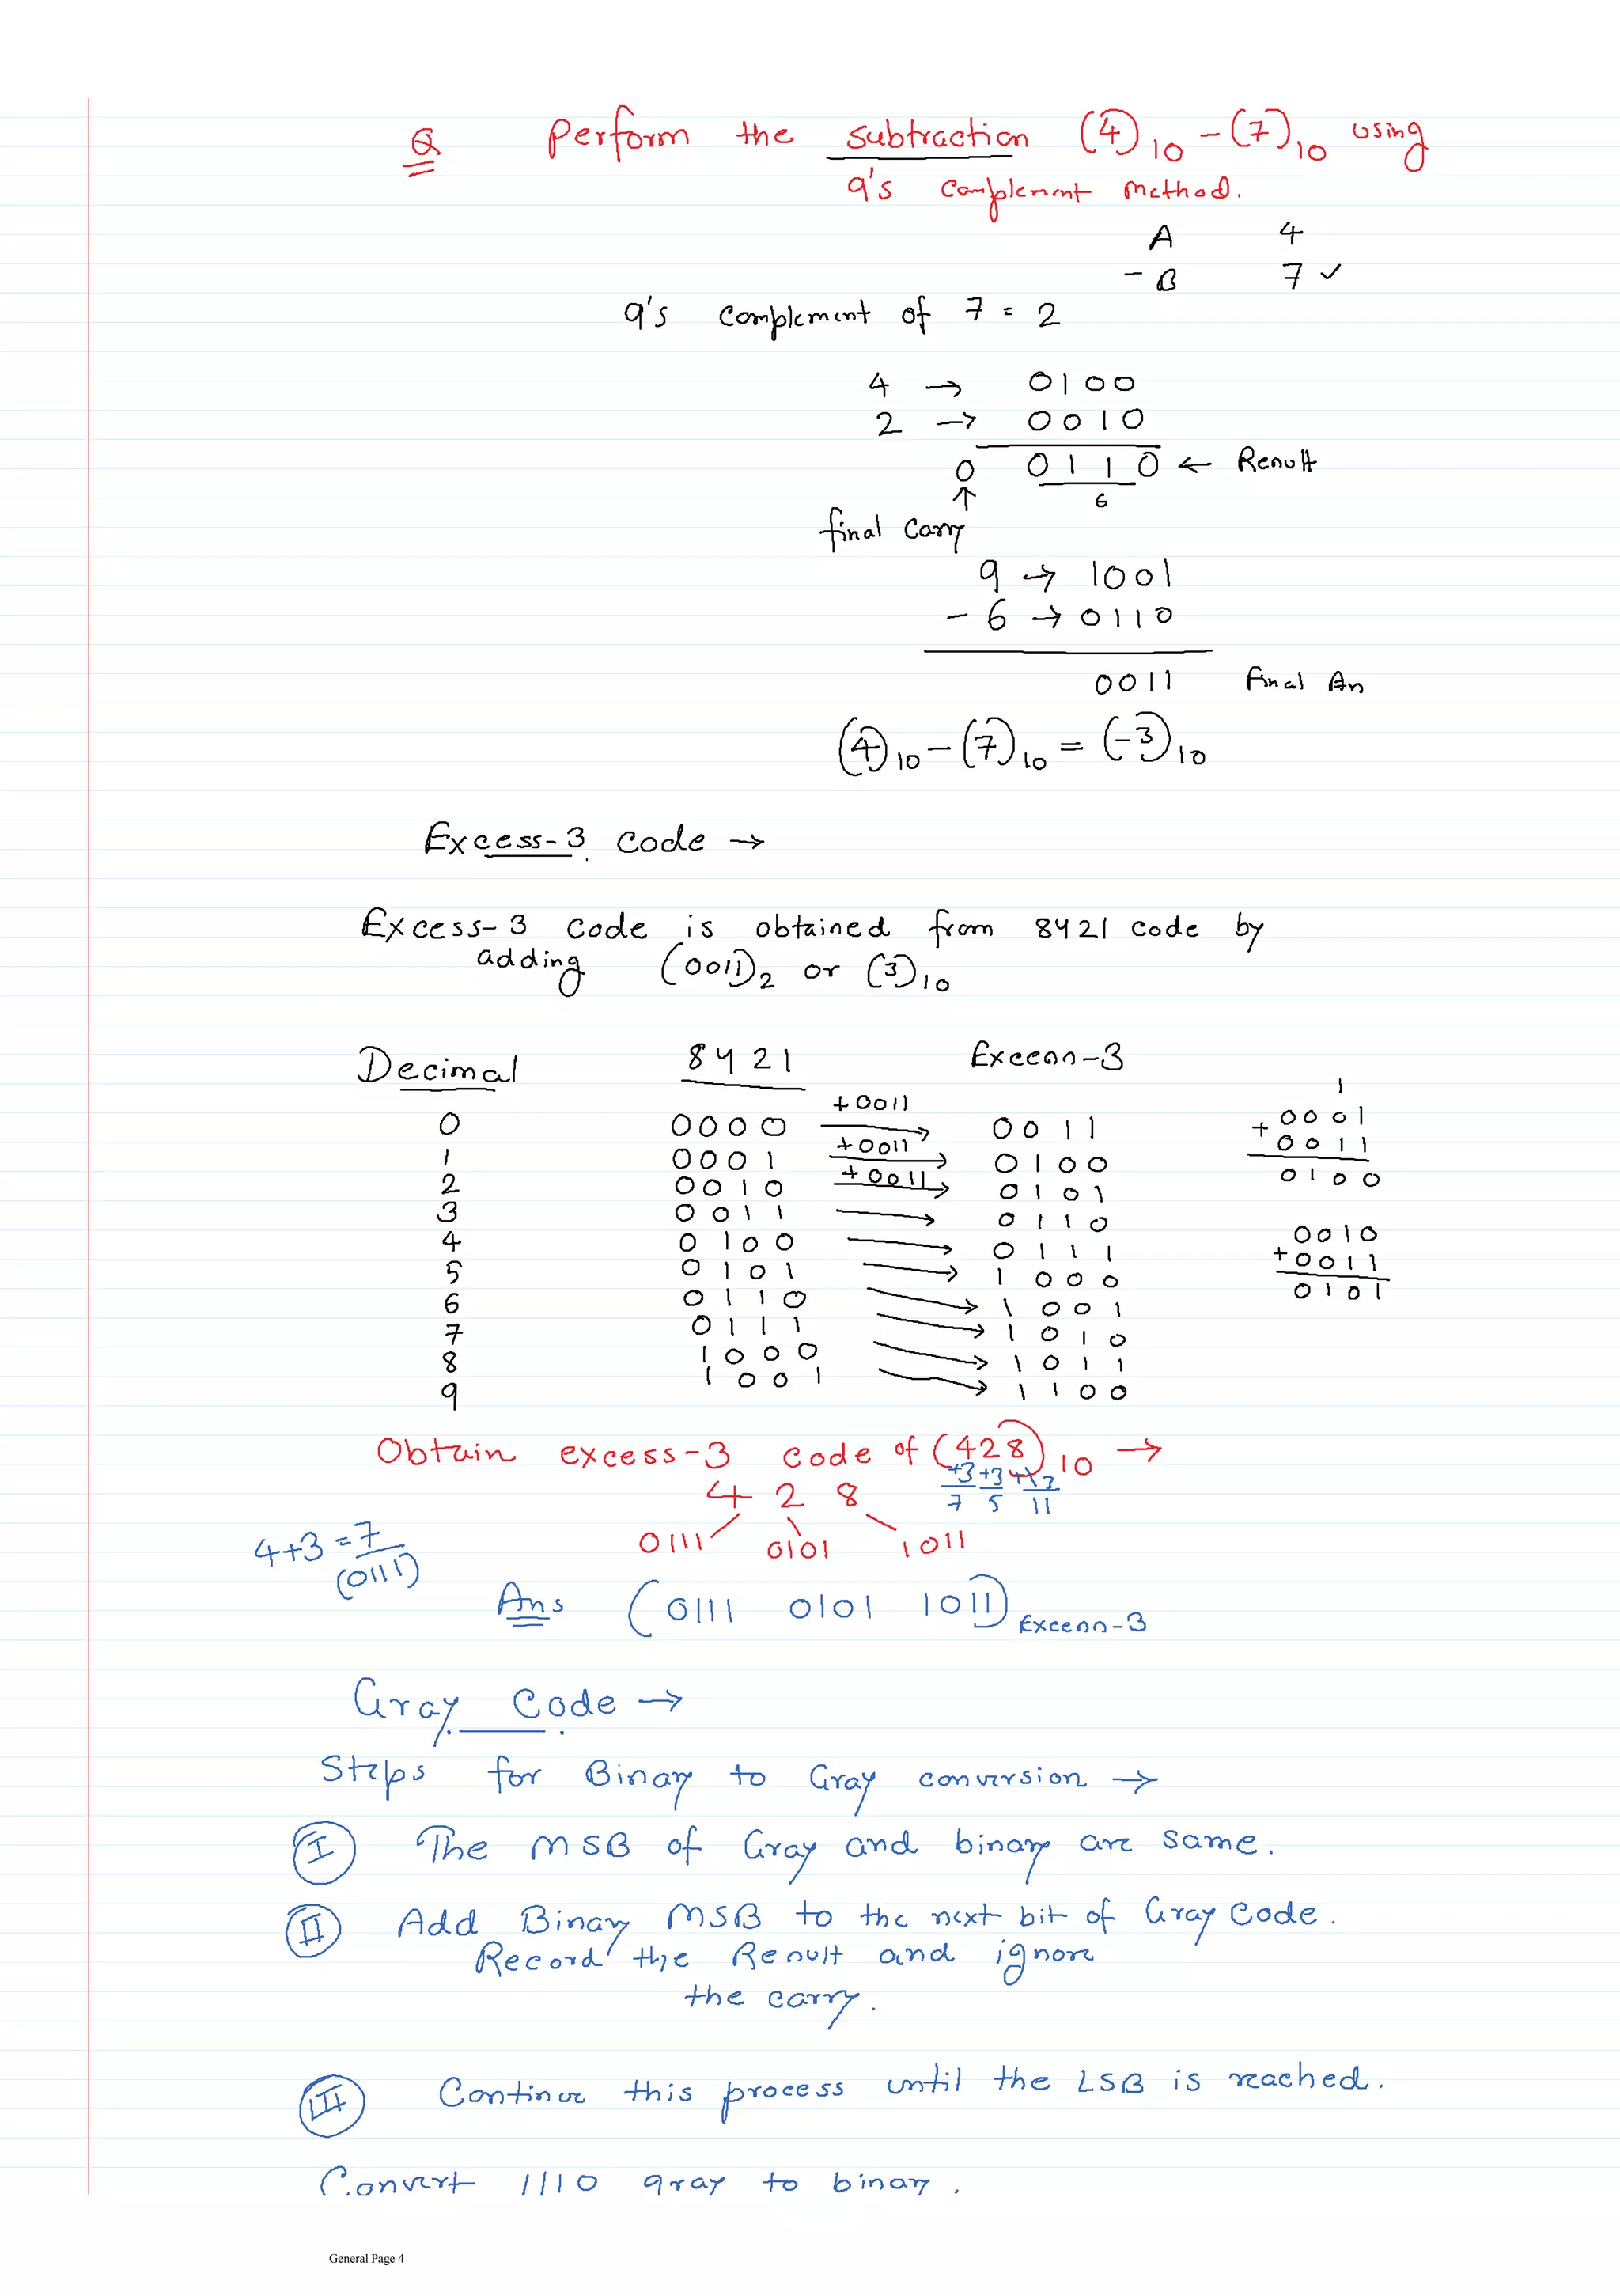 Q Perform the subtraction (4)10 - (7)10 using
9's complement method.
A 4
- B 7 ✓
9's complement of 7 = 2
4 → 0100
2 → 0010
0 0110 ← Result
6
final carry
9 → 1001
- 6 → 0110
0011 final An
(4)10 - (7)10 = (-3)10
Excess-3 code →
Excess-3 code is obtained from 8421 code by
adding (0011)2 or (3)10
Decimal 8421 Excess-3
0 0000 +0011 0011
1 0001 +0011 0100
2 0010 +0011 0101
3 0011 → 0110
4 0100 → 0111
5 0101 → 1000
6 0110 → 1001
7 0111 → 1010
8 1000 → 1011
9 1001 → 1100
1
0001
+ 0011
0100
0010
+ 0011
0101
Obtain excess-3 code of (428)10 →
+3 +3 +3
7 5 11
4 2 8
0111 0101 1011
4+3 = 7
(0111)
Ans (0111 0101 1011) Excess-3
Gray Code →
Steps for Binary to Gray conversion →
I The MSB of Gray and binary are same.
II Add Binary MSB to the next bit of Gray code.
Record the Result and ignore
the carry.
III Continue this process until the LSB is reached.
Convert 1110 gray to binary.
General Page 4